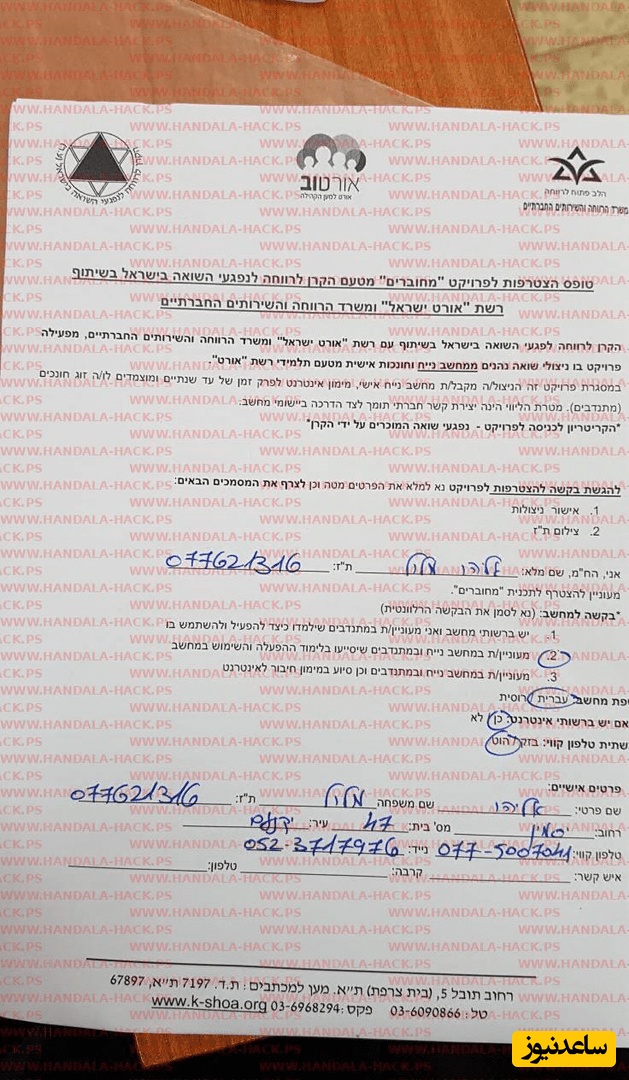 WWW.HANDALA-HACK.PS
אורטוב
אורט למען הקהילה
הלב פתוח לרווחה
משרד הרווחה והשירותים החברתיים
טופס הצטרפות לפרויקט "מחוברים" מטעם הקרן לרווחה לנפגעי השואה בישראל בשיתוף
רשת "אורט ישראל" ומשרד הרווחה והשירותים החברתיים
הקרן לרווחה לפגעי השואה בישראל בשיתוף עם רשת "אורט ישראל" ומשרד הרווחה והשירותים החברתיים, מפעילה
פרויקט בו ניצולי שואה נהנים ממחשב נייח וחונכות אישית מטעם תלמידי רשת "אורט".
במסגרת פרויקט זה הניצול/ה מקבל/ת מחשב נייח אישי, מימון אינטרנט לפרק זמן של עד שנתיים ומוצמדים לו/ה זוג חונכים
(מתנדבים). מטרת הליווי הינה יצירת קשר חברתי תומך לצד הדרכה ביישומי מחשב.
*הקריטריון לכניסה לפרויקט - נפגעי שואה המוכרים על ידי הקרן*
להגשת בקשה להצטרפות לפרויקט נא למלא את הפרטים מטה וכן לצרף את המסמכים הבאים:
1. אישור ניצולות
2. צילום ת"ז
אני, הח"מ, שם מלא: ת"ז:
מעוניין להצטרף לתכנית "מחוברים".
*בקשה למחשב: (נא לסמן את הבקשה הרלוונטית)
1. יש ברשותי מחשב ואני מעוניין/ת במתנדבים שילמדו כיצד להפעיל ולהשתמש בו
2. מעוניין/ת במחשב נייח ובמתנדבים שיסייעו בלימוד ההפעלה והשימוש במחשב
3. מעוניין/ת במחשב נייח ובמתנדבים וכן סיוע במימון חיבור לאינטרנט
פת מחשב: עברית / רוסית
אם יש ברשותי אינטרנט: כן / לא
שתית טלפון קווי: בזק / הוט
פרטים אישיים:
שם פרטי: שם משפחה: ת"ז:
רחוב: מס' בית: עיר:
טלפון קווי: נייד:
איש קשר: קרבה: טלפון:
רחוב תובל 5, (בית צרפת) ת"א. מען למכתבים : ת.ד. 7197 ת"א, 67897
טל: 03-6090866 פקס: 03-6968294 www.k-shoa.org
ساعدنیوز